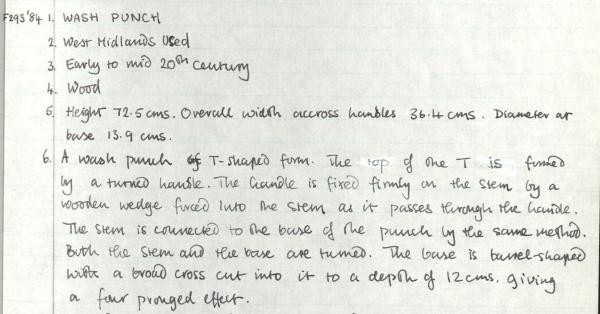 F293'84 1. WASH PUNCH
2. West Midlands Used
3. Early to mid 20th Century
4. Wood
5. Height 72.5cms. Overall width accross handles 36.4cms. Diameter at
base 13.9 cms.
6. A wash punch of T-shaped form. The top of the T is formed
by a turned handle. The handle is fixed firmly on the stem by a
wooden wedge forced into the stem as it passes through the handle.
The stem is connected to the base of the punch by the same method.
Both the stem and the base are turned. The base is barrel-shaped
with a broad cross cut into it to a depth of 12cms. giving
a four pronged effect.